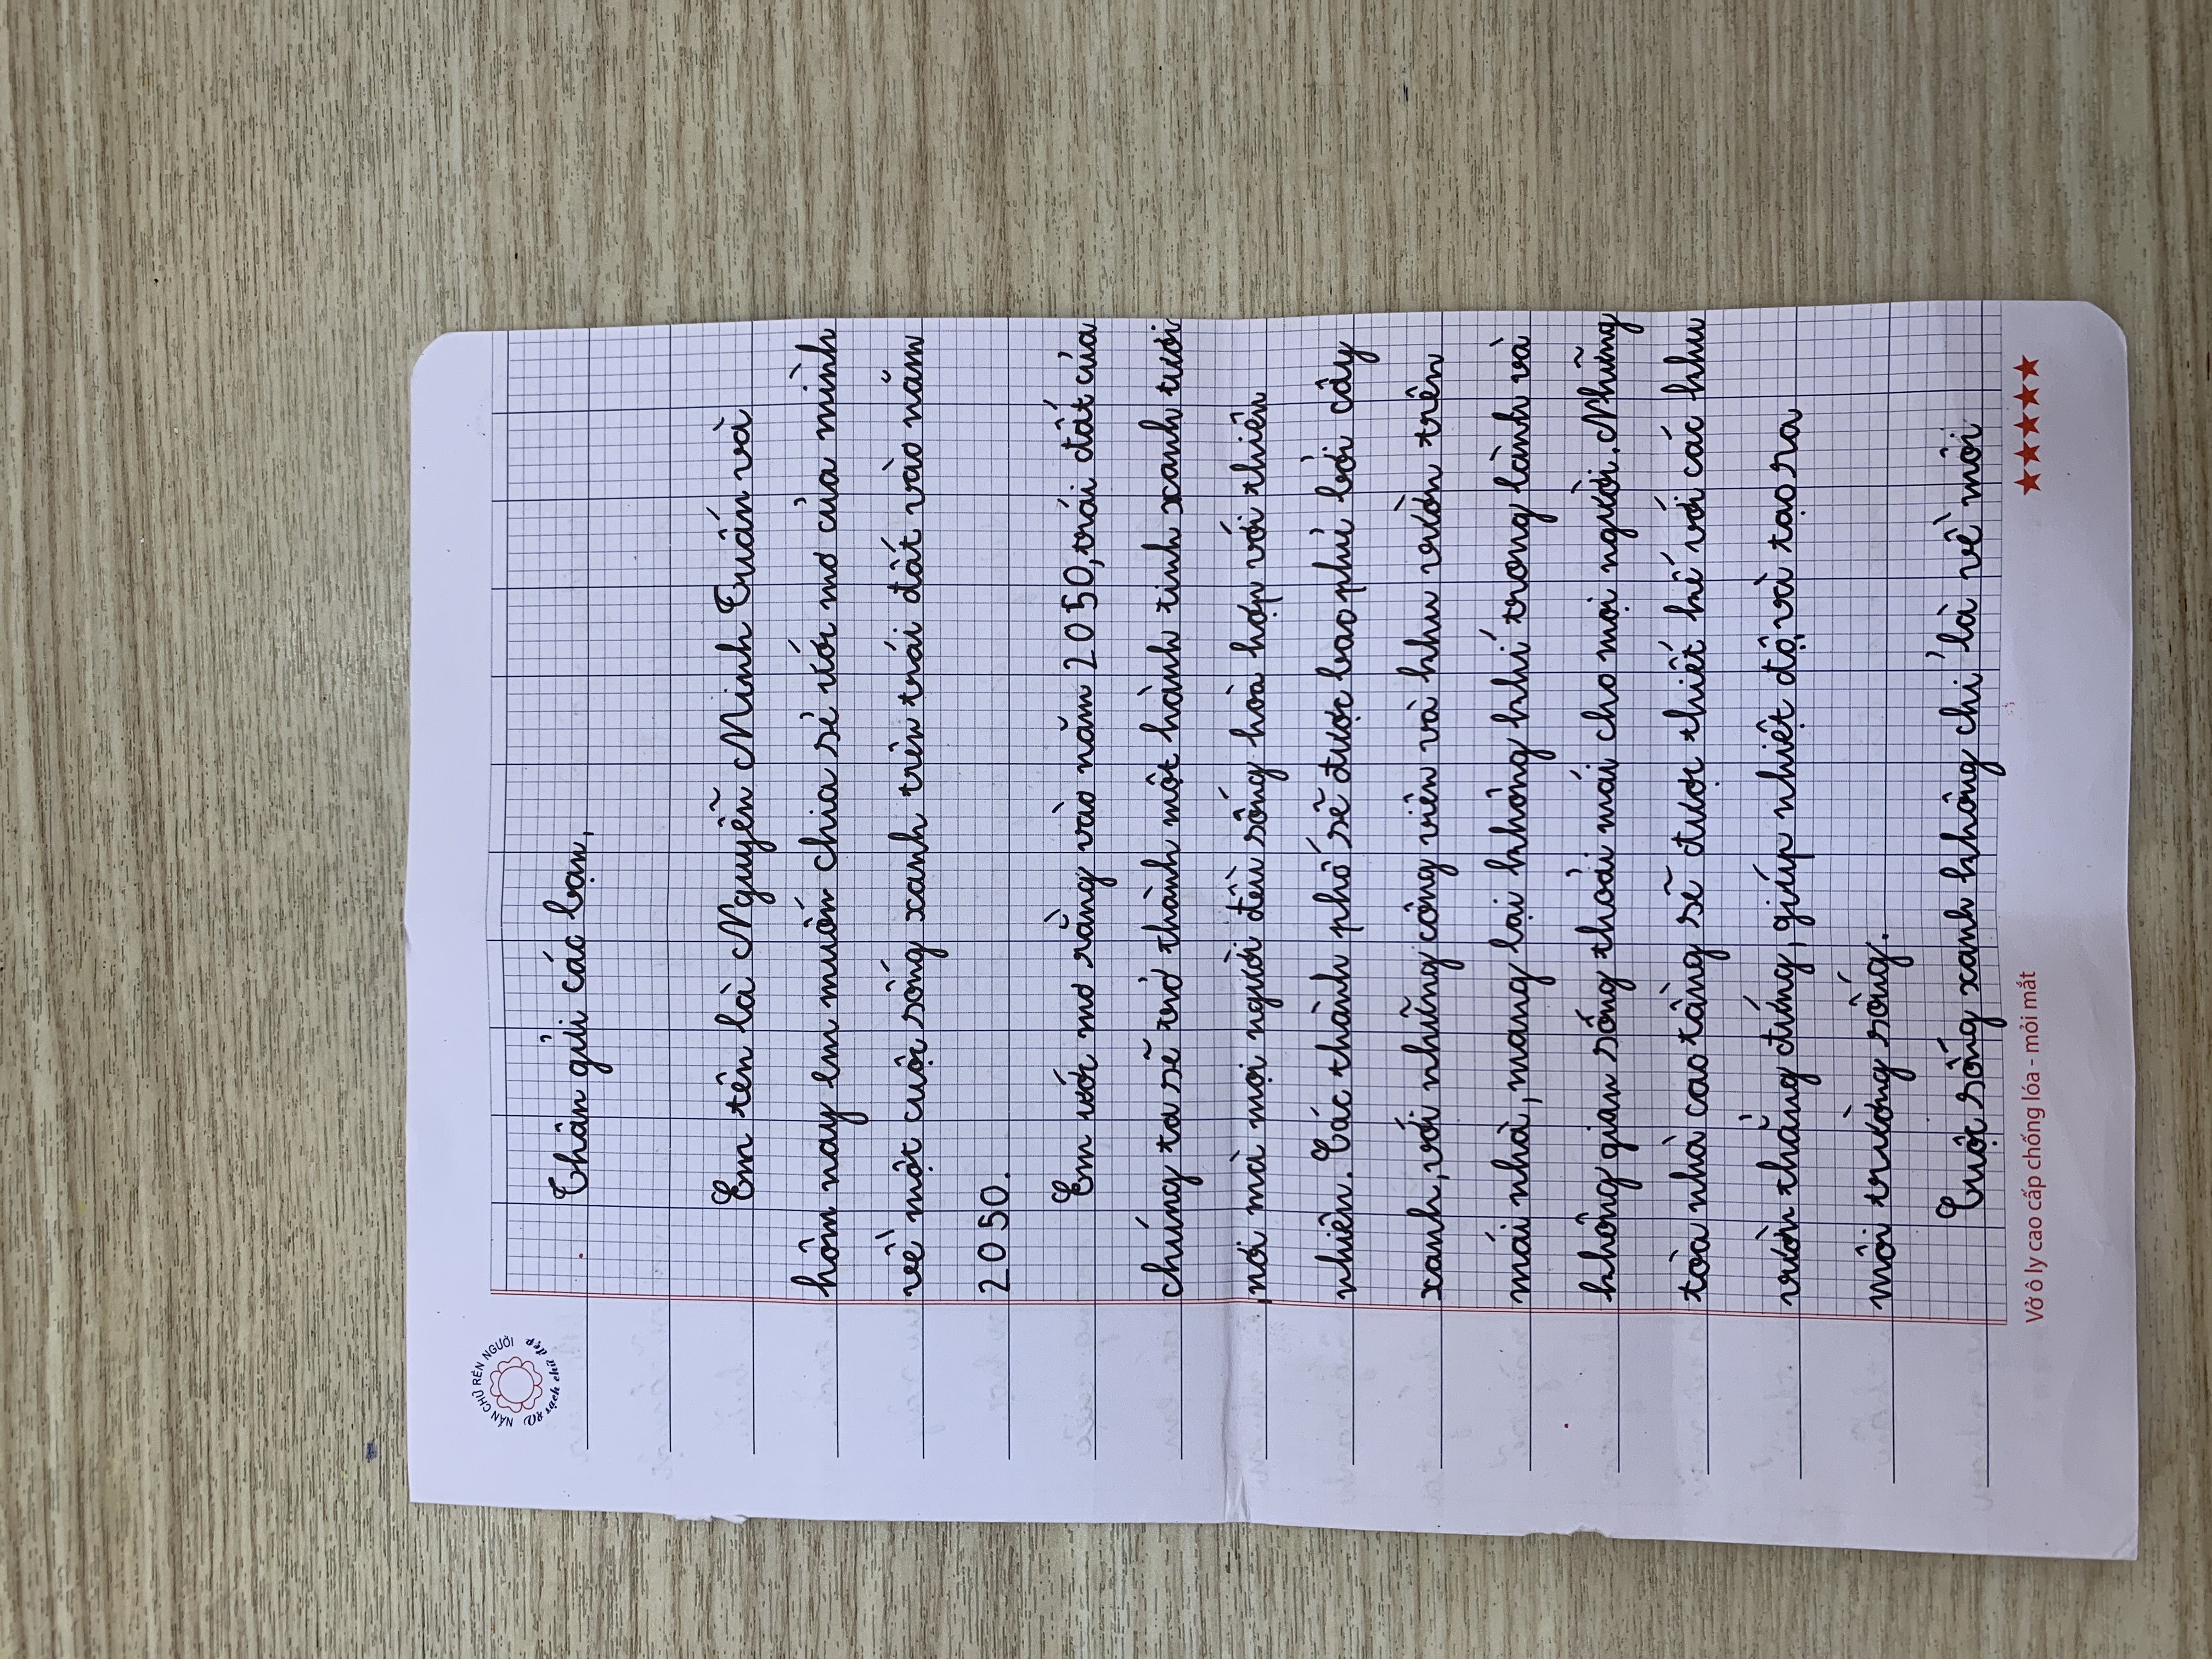 NẮN CHỮ RÈN NGƯỜI
Vở sạch chữ đẹp
Thân gửi các bạn,
Em tên là Nguyễn Minh Tuấn và
hôm nay em muốn chia sẻ ước mơ của mình
về một cuộc sống xanh trên trái đất vào năm
2050.
Em ước mơ rằng vào năm 2050, trái đất của
chúng ta sẽ trở thành một hành tinh xanh tươi
, nơi mà mọi người đều sống hòa hợp với thiên
nhiên. Các thành phố sẽ được bao phủ bởi cây
xanh, với những công viên và khu vườn trên
mái nhà, mang lại không khí trong lành và
không gian sống thoải mái cho mọi người. Những
tòa nhà cao tầng sẽ được thiết kế với các khu
vườn thẳng đứng, giúp nhiệt độ và tạo ra
môi trường sống.
Cuộc sống xanh không chỉ là về môi
Vở ô ly cao cấp chống lóa - mỏi mắt